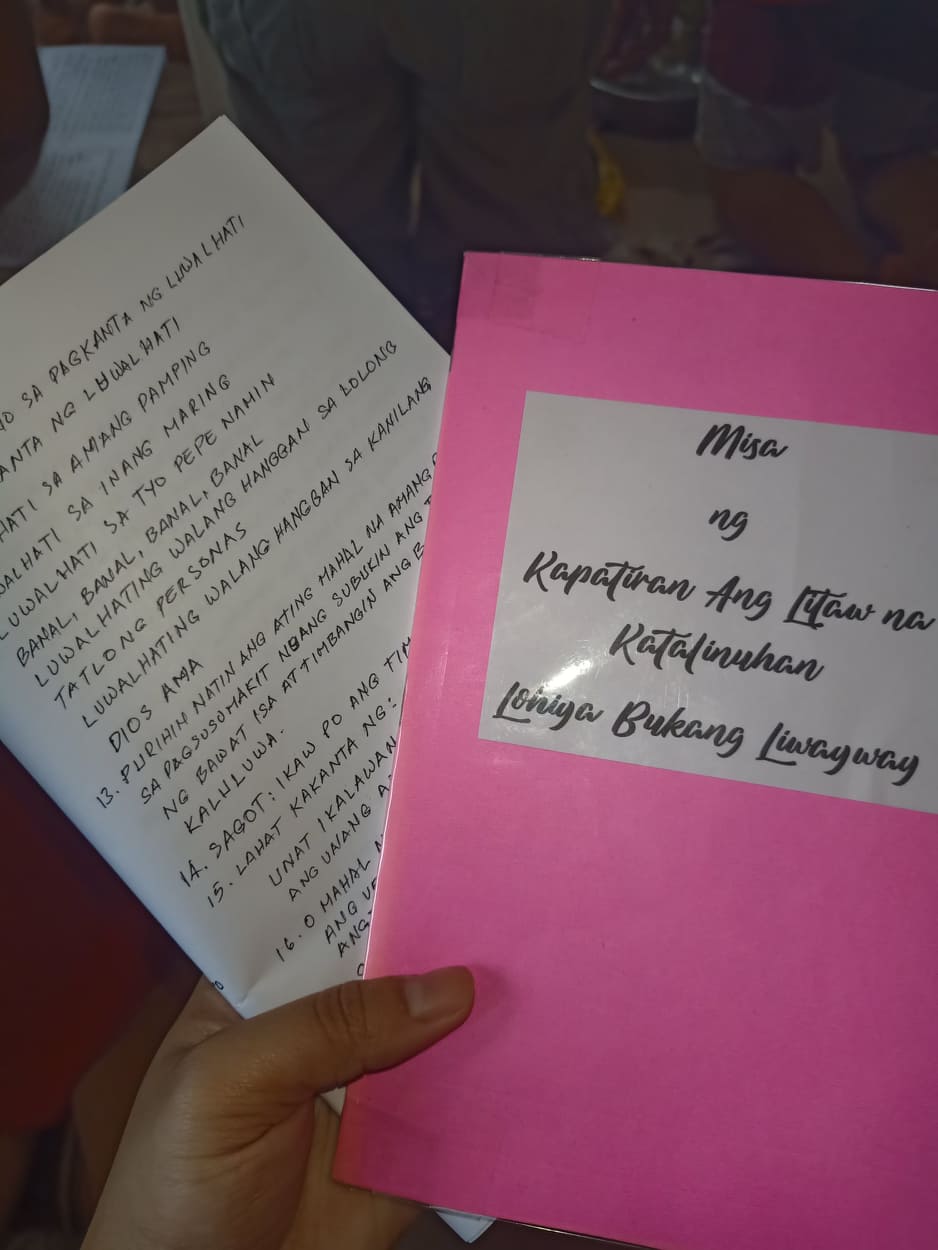 SA PAGKANTA NG LUWALHATI
NG LUWALHATI
SA AMANG PAMPING
SA INANG MARING
LUWALHATI SA TYO PEPE NAMIN
BANAL, BANAL, BANAL, BANAL
LUWALHATING WALANG HANGGAN SA LOLONG
TATLONG PERSONAS
LUWALHATING WALANG HANGGAN SA KANILANG
DIOS AMA
13. PURIHIN NATIN ANG ATING MAHAL NA AMANG
SA PAGSUSUMAKIT NBANG SUBUKIN ANG
NG BAWAT ISA AT TIMBANGIN ANG
KALULUWA.
14. SAGOT: IKAW PO ANG
15. LAHAT KAKANTA NG:
UNAT IKALAWAN
ANG UNANG
16. O MAHAL
ANG
ANG
Misa
ng
Kapatiran Ang Litaw na
Katalinuhan
Lohiya Bukang Liwayway